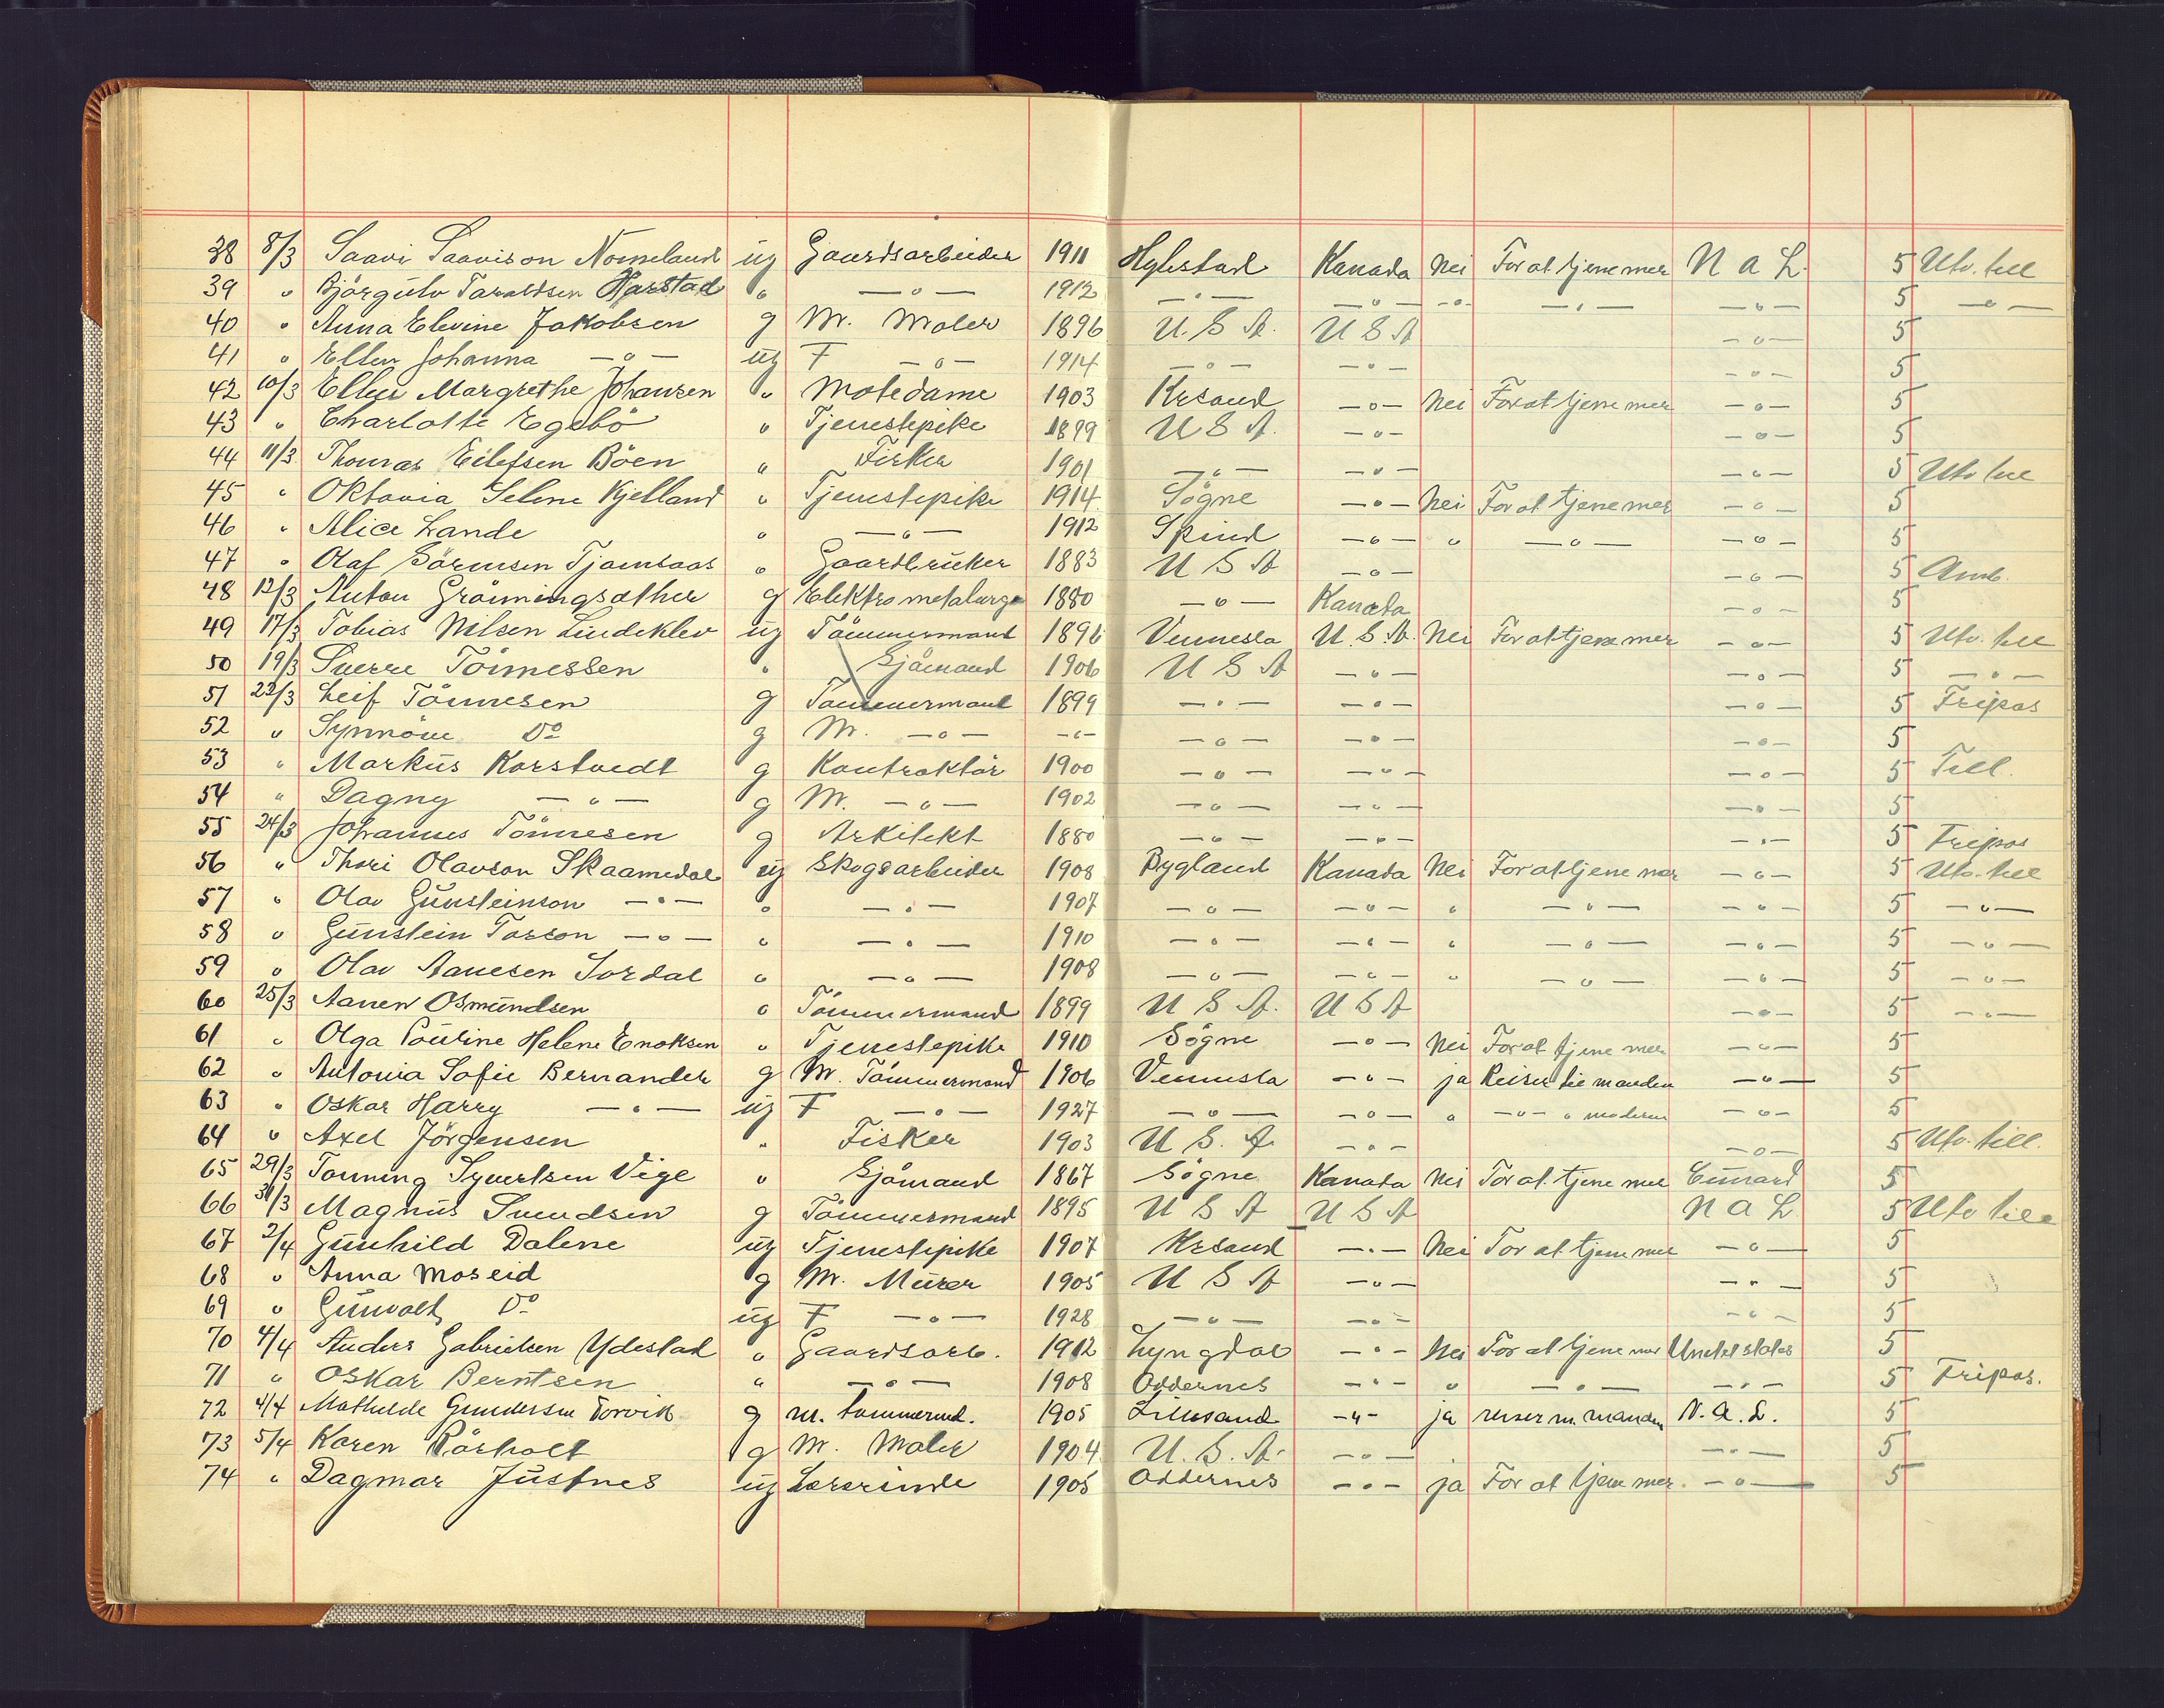 38 8/3 Saavi Saavison Nomeland ug Gaardsarbeider 1911 Hylestad Kanada Nei For at tjene mer N A L 5 Utv. till
39 " Björgulv Taraldsen Harstad " —"— 1912 —"— —"— —"— —"— —"— 5 —"—
40 " Anna Elevine Jakobsen g M. Maler 1896 U. S A. U S A —"— 5
41 " Ellen Johanna —"— ug F —"— 1914 —"— —"— —"— 5
42 10/3 Ellen Margrethe Johansen " Motedame 1903 Krsand —"— Nei For at tjene mer —"— 5
43 " Charlotte Egebö " Tjenestepike 1899 U S A. —"— —"— 5
44 11/3 Thomas Eilefsen Böen " Fisker 1901 —"— —"— —"— 5 Utv till
45 " Oktavia Selene Kjelland " Tjenestepike 1914 Sögne —"— Nei For at tjene mer —"— 5
46 " Alice Lande " —"— 1912 Spind —"— " —"— —"— 5
47 " Olaf Sörensen Tjomsaas " Gaardbruker 1883 U S A —"— —"— 5 Amb.
48 12/3 Anton Grönningsæther g Elektrometalurg 1880 —"— Kanada —"— 5
49 17/3 Tobias Nilsen Lindeklev ug Tömmermand 1896 Vennesla U. S. A. Nei For at tjene mer —"— 5 Utv. till
50 19/3 Sverre Tönnessen " Sjömand 1906 U S A —"— —"— 5 —"—
51 22/3 Leif Tönnesen g Tömmermand 1899 —"— —"— —"— 5 Fripas
52 " Synnöve Do g M. —"— —"— —"— —"— —"— 5
53 " Markus Korstvedt g Kontraktör 1900 —"— —"— —"— 5 Till.
54 " Dagny —"— g M. —"— 1902 —"— —"— —"— 5
55 24/3 Johannes Tönnesen g Arkitekt 1880 —"— —"— —"— 5 Fripas
56 " Thori Olavson Skaamedal ug Skogsarbeider 1908 Bygland Kanada Nei For at tjene mer —"— 5 Utv. till
57 " Olav Gunsteinson —"— " —"— 1907 —"— —"— " —"— —"— 5 —"—
58 " Gunstein Torson —"— " —"— 1910 —"— —"— " —"— —"— 5 —"—
59 " Olav Aanesen Sordal " —"— 1908 —"— —"— " —"— —"— 5 —"—
60 25/3 Aanen Osmundsen " Tömmermand 1899 U S A. U S A —"— 5 —"—
61 " Olga Pouline Helene Enoksen " Tjenestepike 1910 Sögne —"— Nei For at tjene mer —"— 5
62 " Antonia Sofie Bernander g M. Tömmermand 1906 Vennesla —"— ja Reiser til manden —"— 5
63 " Oskar Harry —"— ug F —"— 1927 —"— —"— " —"— " moderen —"— 5
64 " Axel Jörgensen " Fisker 1903 U S. A. —"— —"— 5 Utv. till.
65 29/3 Tonning Syvertsen Vige " Sjömand 1867 Sögne Kanada Nei For at tjene mer Cunard 5
66 31/3 Magnus Svendsen g Tömmermand 1895 U S A U S A N A L 5 Utv till
67 2/4 Gunhild Dalene ug Tjenestepike 1907 Krsand —"— Nei For at tjene mer —"— 5
68 " Anna Moseid g M. Murer 1905 U S A —"— —"— 5
69 " Gunvald Do ug F —"— 1928 —"— —"— —"— 5
70 4/4 Anders Gabrielsen Ydestad " Gaardsarb. 1912 Lyngdal —"— Nei For at tjene mer United states 5
71 " Oskar Berntsen " —"— 1908 Oddernes —"— " —"— —"— 5 Fripas.
72 4/4 Mathilde Gundersen Torvik g m. tømmermd. 1905 Lillesand —"— ja reiser m. manden N. A. L. 5
73 5/4 Karen Rörholt g M. Maler 1904 U. S. A. —"— —"— 5
74 " Dagmar Justnes ug Lærerinde 1905 Oddernes —"— ja For at tjene mer. —"— 5